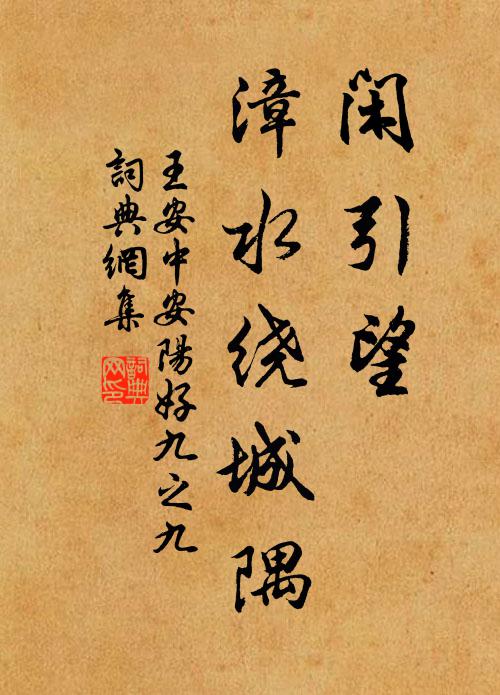 闲引望
漳水绕城隅
王安中安陽好九之九
詞典網集
詞典网印